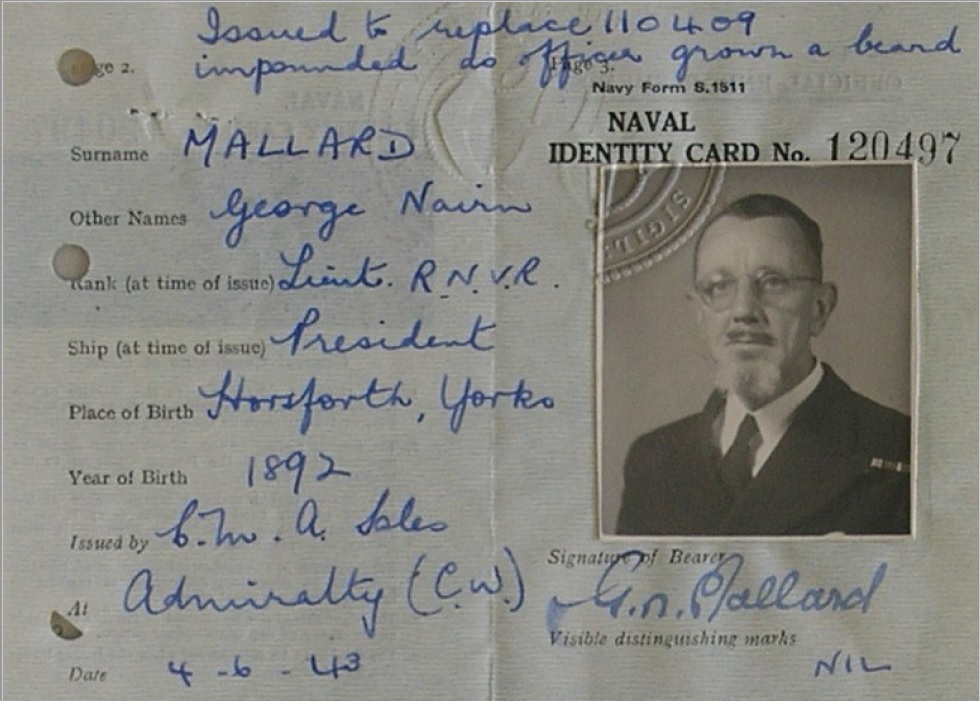 Issued to replace 110409
impounded as officer grown a beard
Page 2.
Surname MALLARD
Other Names George Nairn
Rank (at time of issue) Lieut. R.N.V.R.
Ship (at time of issue) President
Place of Birth Horsforth, Yorks
Year of Birth 1892
Issued by C.M. A. Sales
At Admiralty (C.W.)
Date 4-6-43
Page 3.
Navy Form S.1511
NAVAL
IDENTITY CARD No. 120497
SIGIL
Signature of Bearer
G.N. Mallard
Visible distinguishing marks
NIL